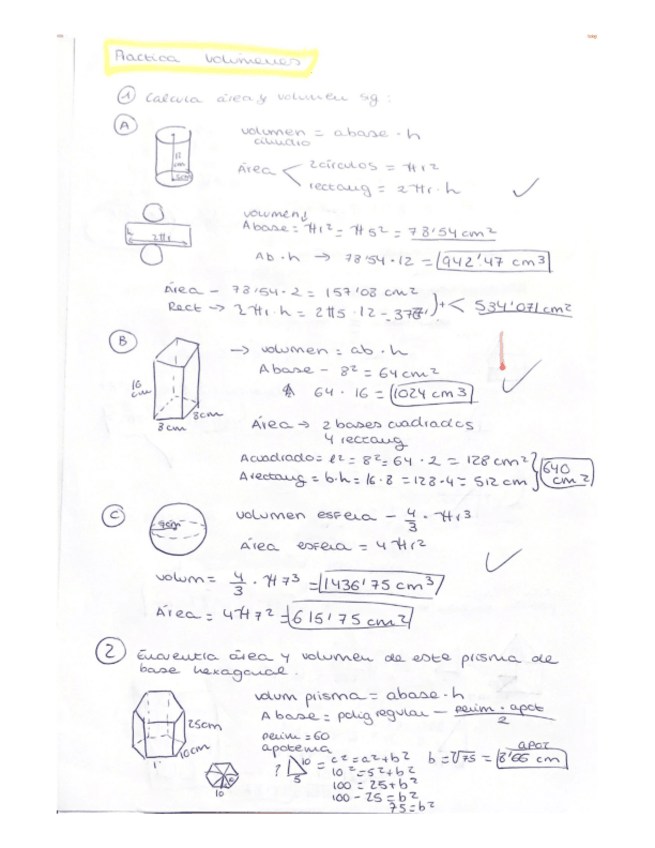 Practica volúmenes
① Calcula área y volumen sig:
A
12 cm
5cm
volumen = abase · h
cilindro
Área < 2círculos = πr²
rectang = 2πr · h
h
2πr
volumen
Abase = πr² = π5² = 78'54 cm²
Ab · h → 78'54 · 12 = 942'47 cm3
Área - 78'54 · 2 = 157'08 cm²
Rect → 2πr · h = 2π5 · 12 - 376 )+ < 534'071 cm²
B
16 cm
8cm
8cm
→ volumen = ab · h
Abase - 8² = 64 cm²
64 · 16 = 1024 cm3
Área → 2 bases cuadrados
4 rectang
Acuadrado = l² = 8² = 64 · 2 = 128 cm²
Arectang = b·h = 16 · 8 = 128 · 4 = 512 cm
640 cm²
C
volumen esfera - 4/3 · πr3
Área esfera = 4πr²
volum = 4/3 · π7³ = 1436'75 cm³
Área = 4π7² = 615'75 cm²
② Encuentra área y volumen de este prisma de
base hexagonal.
25cm
10cm
10
volum prisma = abase · h
Abase = polig regular - perim · apot / 2
perim = 60
apotema
? 10 5
= c² = a² + b²
10² = 5² + b²
100 = 25 + b²
100 - 25 = b²
75 = b²
b = √75 = 8'66 cm
apot